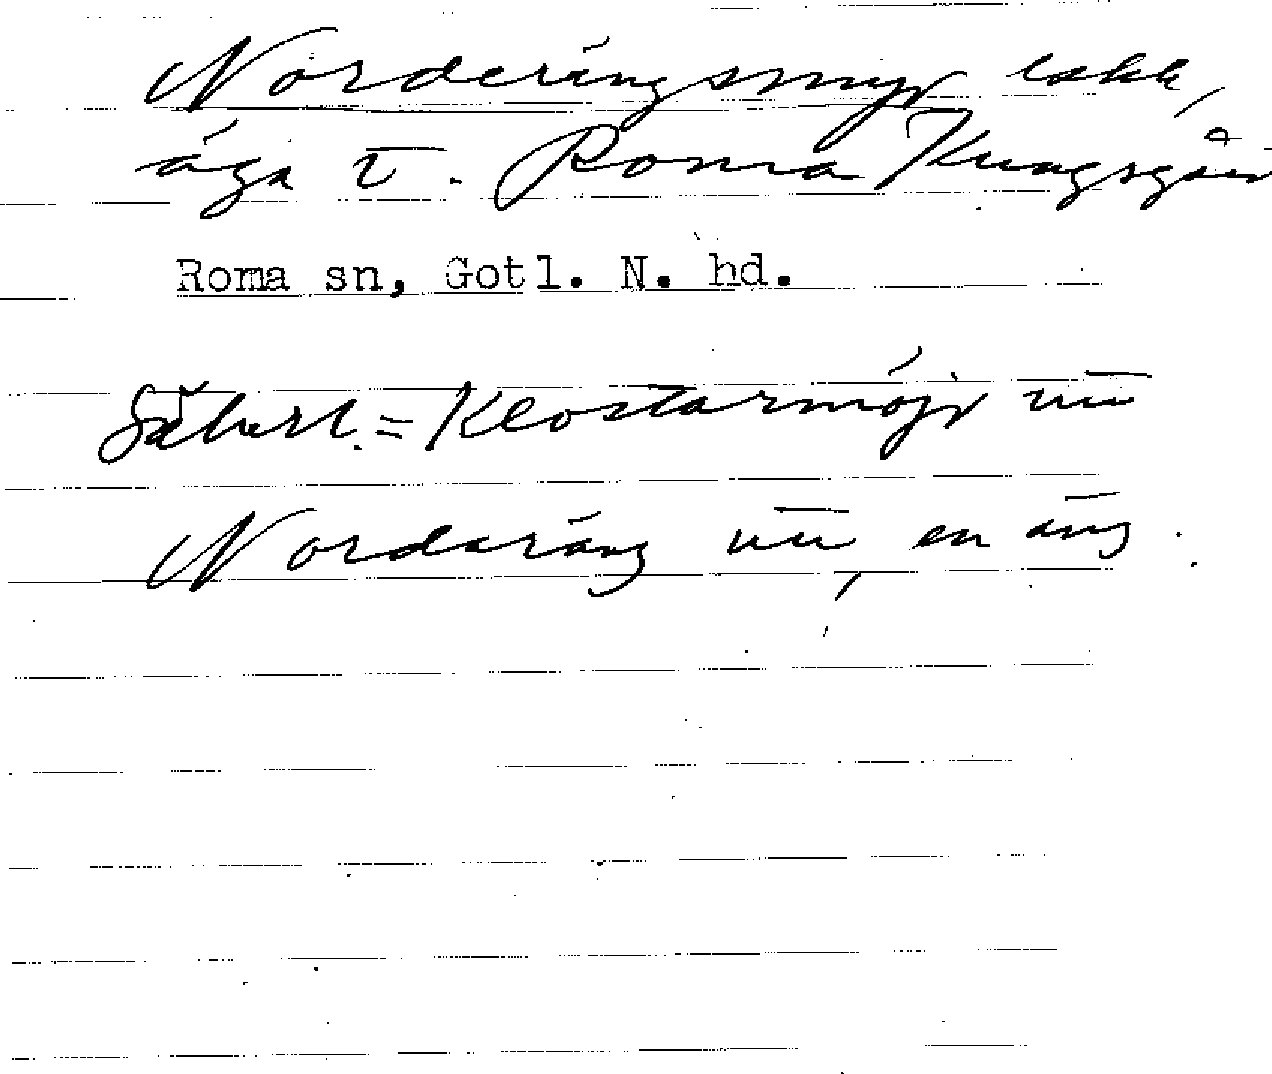 Norderängsmyr
äga t. Roma Kungsgård
Roma sn, Gotl. N. hd.
Säkerl. = Klostarmöjr
Norderäng en äng.